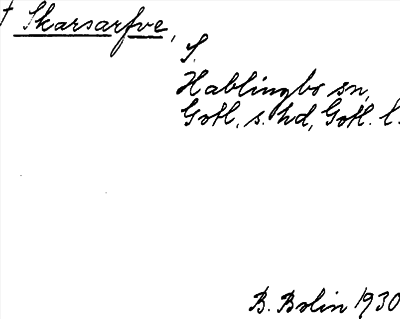 † Skarsarfve,
S.
Hablingbo sn,
Gotl. s. hd, Gotl. l.
B. Bolin 1930